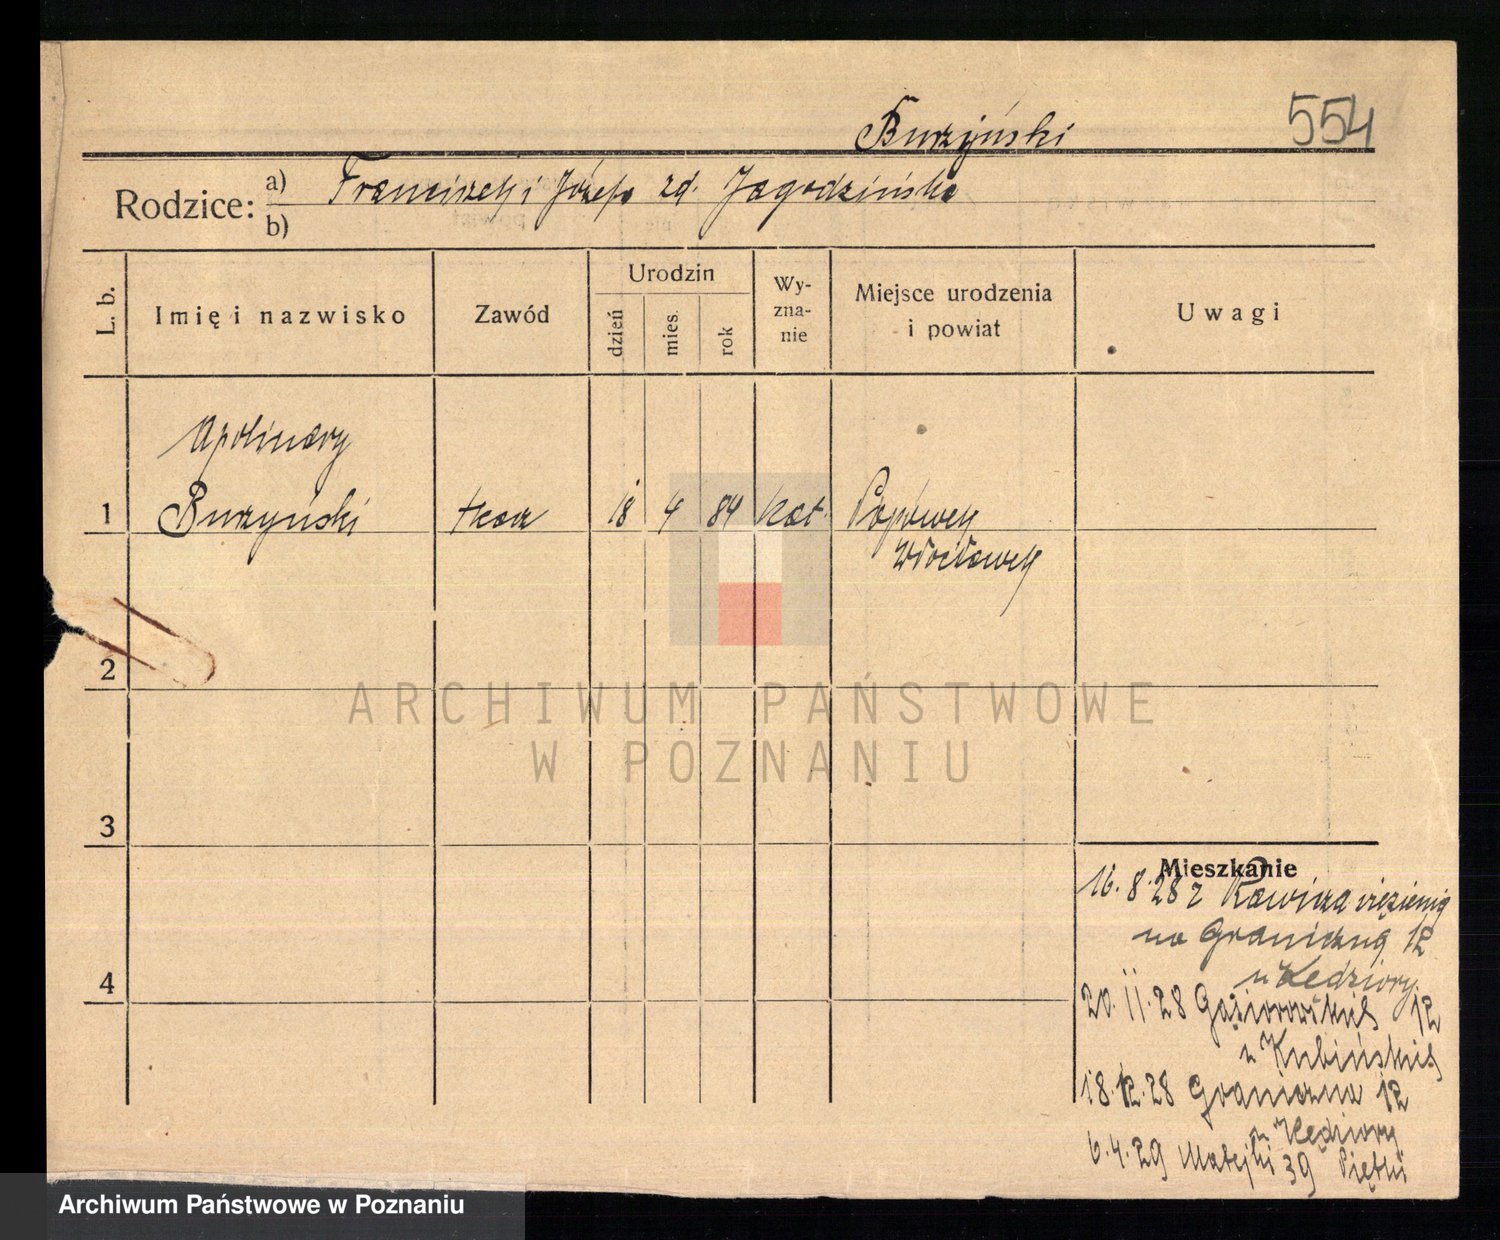 Burzyński
554
Rodzice:
a) Franciszek i Józefa zd. Jagodzińska
b)
L. b.
Imię i nazwisko
Zawód
Urodzin
dzień
mies.
rok
Wy-
zna-
nie
Miejsce urodzenia
i powiat
Uwagi
Apolinary
1 Burzyński tkacz 18 4 84 kat.
Włocławek
2
3
4
Mieszkanie
16. 8. 28 z Rawicza
na Graniczną 12
u Kędziory
20. 11. 28 Gąsiorowskich 12
u Kubińskich
18. 12. 28 Graniczna 12
u Kędziory
6. 4. 29 Matejki 39
ARCHIWUM PAŃSTWOWE
W POZNANIU
Archiwum Państwowe w Poznaniu